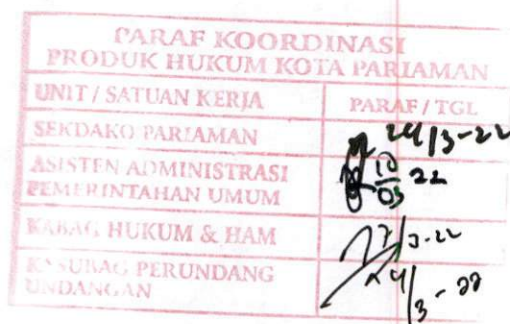 PARAF KOORDINASI
PRODUK HUKUM KOTA PARIAMAN
UNIT / SATUAN KERJA PARAF / TGL
SEKDAKO PARIAMAN 24/3-22
ASISTEN ADMINISTRASI
PEMERINTAHAN UMUM 10/03 22
KABAG HUKUM & HAM 7/3-22
KASUBAG PERUNDANG
UNDANGAN 4/3-22